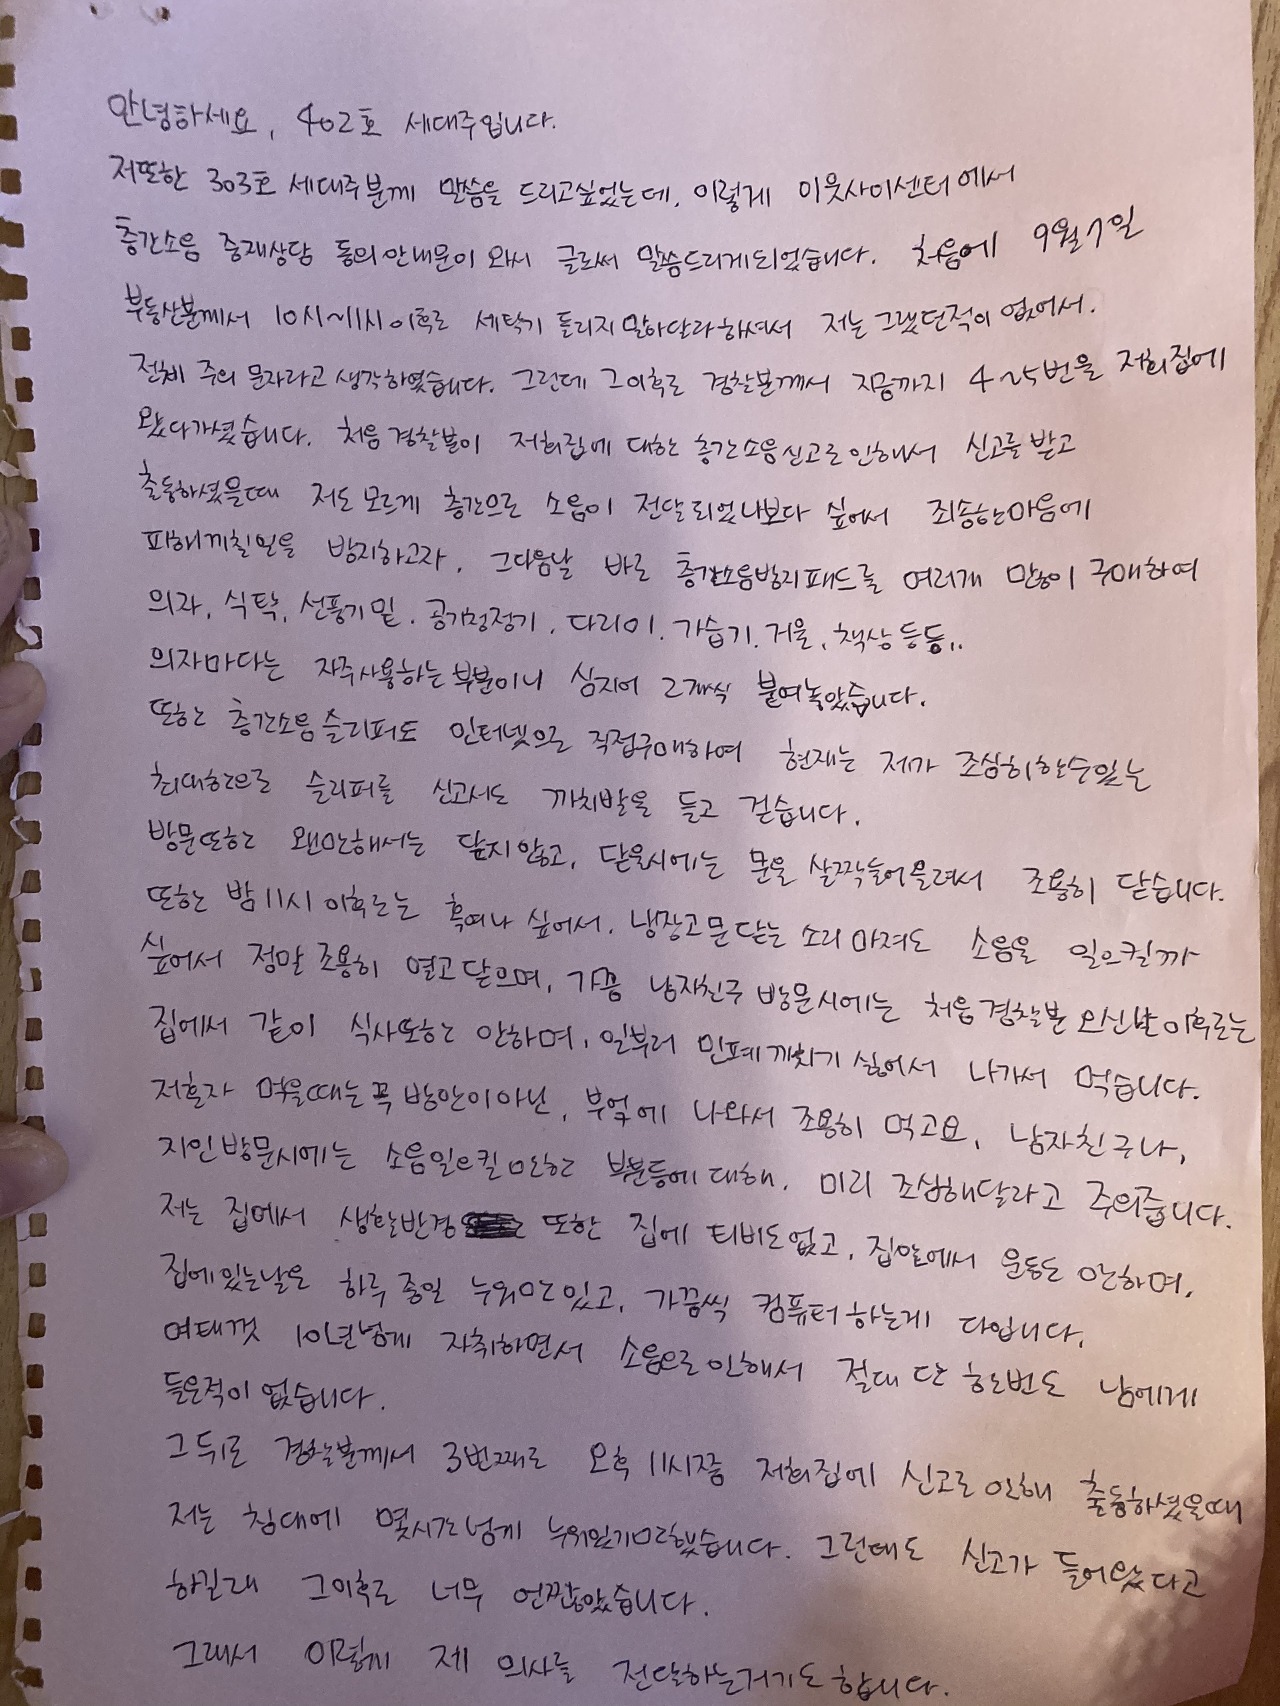 안녕하세요, 402호 세대주입니다.
저또한 303호 세대주분께 말씀을 드리고싶었는데, 이렇게 이웃사이센터에서
층간소음 중재상담 동의안내문이 와서 글로써 말씀드리게되었습니다. 처음에 9월7일
부동산분께서 10시~11시이후로 세탁기 돌리지말아달라하셔서 저는그랬던적이 없어서.
전체 주의 문자라고생각하였습니다. 그런데 그이후로 경찰분께서 지금까지 4~5번을 저희집에
왔다가셨습니다. 처음경찰분이 저희집에 대한 층간소음신고로인해서 신고를받고
출동하셨을때 저도모르게 층간으로 소음이 전달되었나보다 싶어서 죄송한마음에
피해끼칠일을 방지하고자, 그다음날 바로 층간소음방지패드를 여러개 많이 구매하여
의자, 식탁, 선풍기밑, 공기청정기, 다리미, 가습기, 거울, 책상등등..
의자마다는 자주사용하는부분이니 심지어 2개씩 붙여놓았습니다.
또한 층간소음슬리퍼도 인터넷으로 직접구매하여 현재는 제가 조심히할수있는
최대한으로 슬리퍼를 신고서도 까치발을 들고 걷습니다.
방문또한 왠만해서는 닫지않고, 닫을시에는 문을 살짝들어올려서 조용히 닫습니다.
또한 밤11시이후로는 혹여나 싶어서, 냉장고문닫는 소리마저도 소음을 일으킬까
싶어서 정말조용히 열고닫으며, 가끔 남자친구 방문시에는 처음경찰분오신날이후로는
집에서 같이 식사또한 안하며, 일부러 민폐끼치기싫어서 나가서 먹습니다.
저혼자 먹을때는꼭방안이아닌, 부엌에 나와서 조용히 먹고요, 남자친구나,
지인방문시에는 소음일으킬만한 부분들에대해, 미리 조심해달라고 주의줍니다.
저는 집에서 생활반경 또한 집에 티비도없고, 집안에서 운동도 안하며,
집에있는날은 하루종일 누워만있고, 가끔씩 컴퓨터하는게 다입니다.
여태껏 10년넘게 자취하면서 소음으로인해서 절대 단 한번도 남에게
들은적이 없습니다.
그뒤로 경찰분께서 3번째로 오후11시쯤 저희집에 신고로인해 출동하셨을때
저는 침대에 몇시간넘게 누워있기만했습니다. 그런데도 신고가 들어왔다고
하길래 그이후로 너무 언짢았습니다.
그래서 이렇게 제 의사를 전달하는거기도합니다.